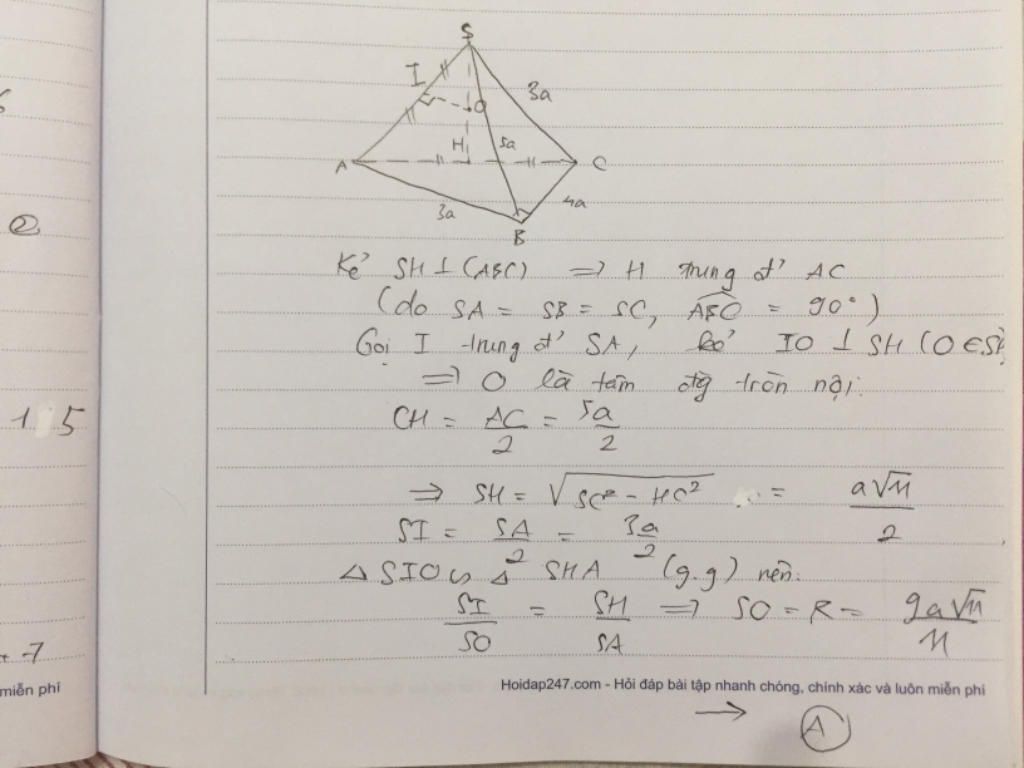 S
I
3a
O
H
5a
A
C
3a
4a
B
Kẻ SH ⊥ (ABC) => H trung đ' AC
(do SA = SB = SC, ABC = 90°)
Gọi I trung đ' SA, kẻ IO ⊥ SH (O ∈ SH
=> O là tâm đg tròn nội.
CH = AC/2 = 5a/2
=> SH = √SC² - HC² = a√11/2
SI = SA/2 = 3a/2
Δ SIO ∽ Δ SHA (g.g) nên:
SI/SO = SH/SA => SO = R = 9a√11/11
1 5
+ -7
miễn phí
Hoidap247.com - Hỏi đáp bài tập nhanh chóng, chính xác và luôn miễn phí
→ A